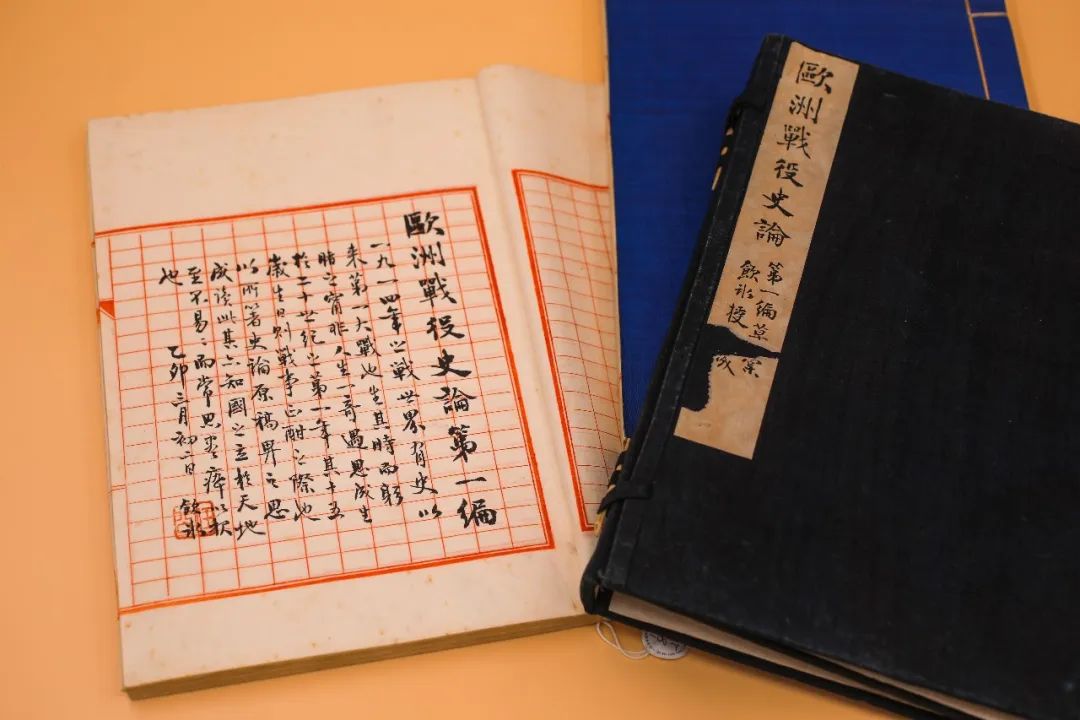 歐洲戰役史論第一編
一九一四年之戰世界有史以
來第一大戰也生其時而躬
睹之寧非人生一奇遇思成生
於二十世紀之第一年其十五
歲生日則戰事正酣之際也
以所箸史論原稿畀之思
成讀此其亦知國之立於天地
至不易〻而常思盡瘁以報
也 乙卯三月初二日 飲冰
歐洲戰役史論
第一編草稾
飲冰授 成